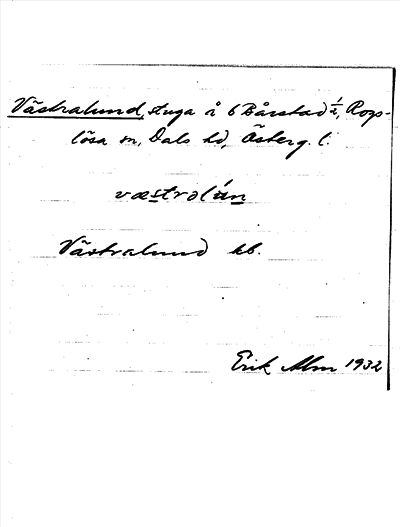 Västralund, stuga å 6 Bårstad 1/2, Rogs-
lösa sn, Dals hd, Österg. l.
væstrəlún
Västralund kb.
Erik Alm 1932